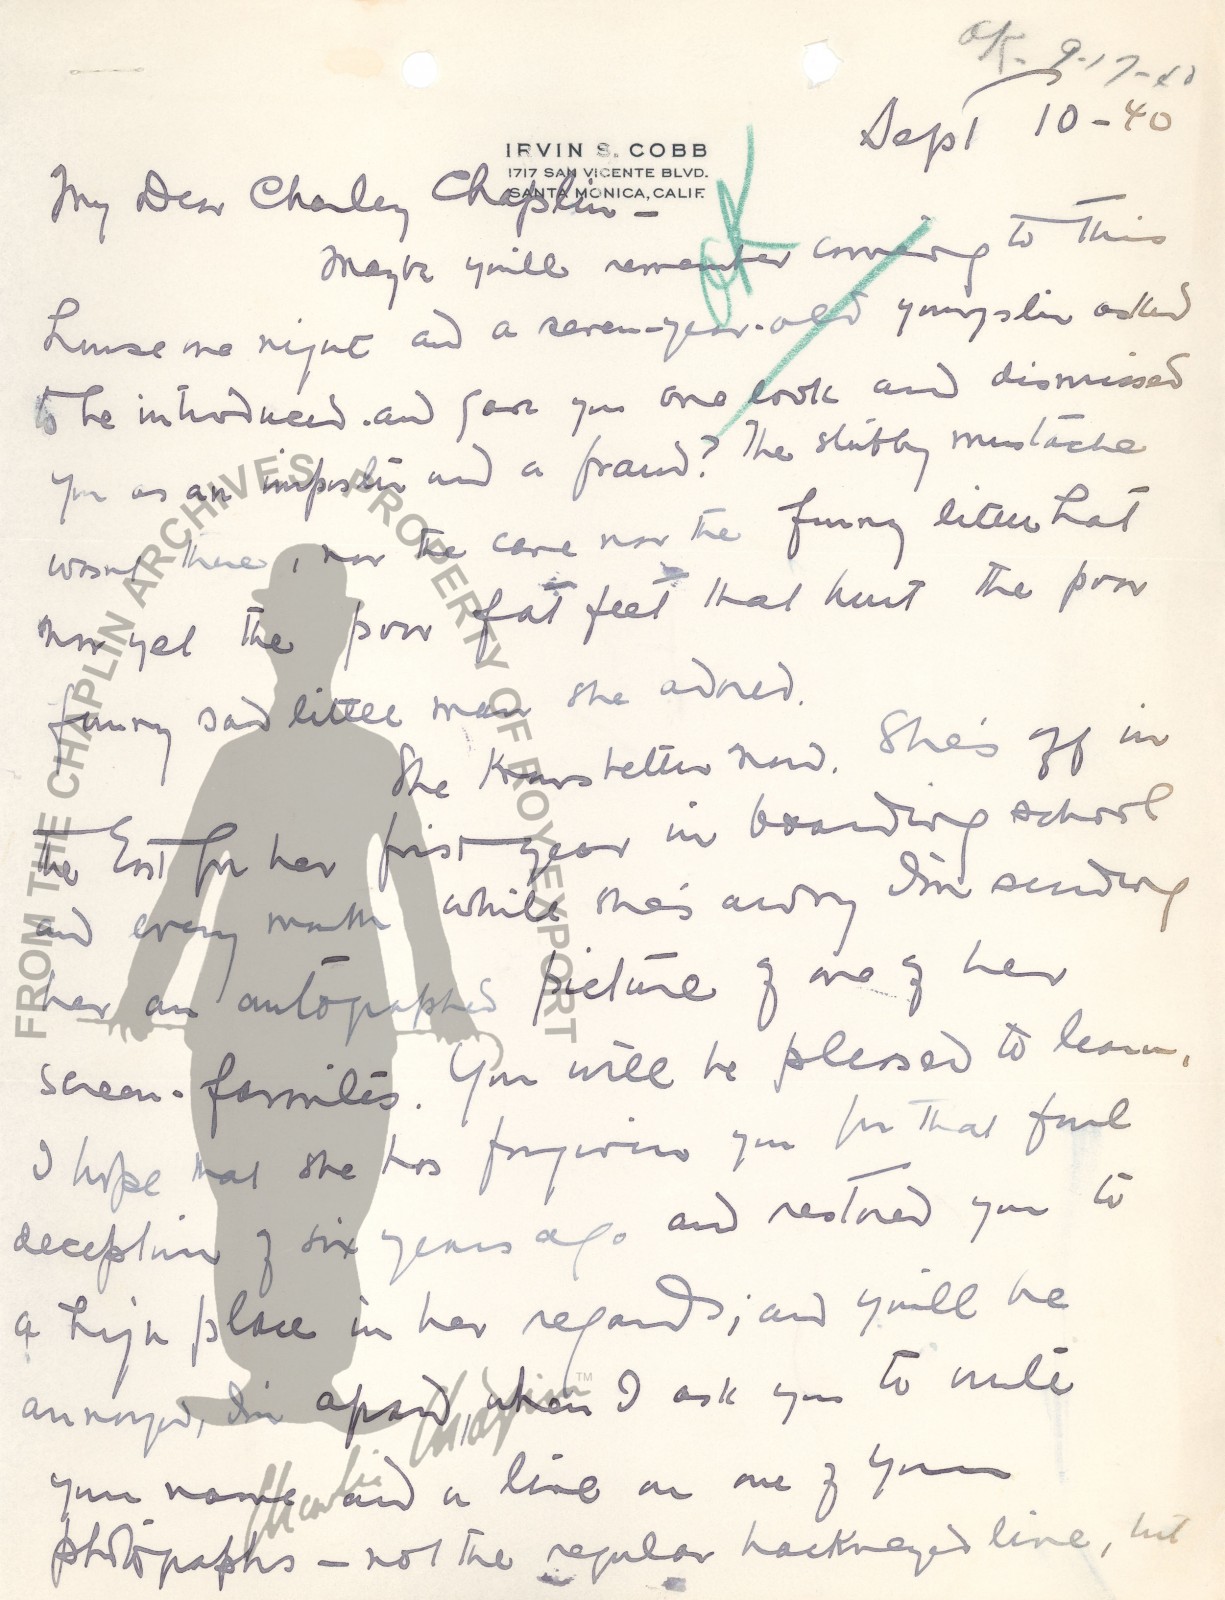 OK - 9-17-40
Sept 10-40
IRVIN S. COBB
1717 SAN VICENTE BLVD.
SANTA MONICA, CALIF.
OK
My Dear Charley Chaplin -
Maybe you'll remember coming to this
house one night and a seven-year-old youngster asked
to be introduced and gave you one look and dismissed
you as an imposter and a fraud? The stubby mustache
wasn't there, nor the cane nor the funny little hat
nor yet the poor fat feet that hurt the poor
funny sad little man she adored.
She knows better now. She's off in
the East for her first year in boarding school
and every month while she's away I'm sending
her an autographed picture of one of her
screen-favorites. You will be pleased to learn,
I hope that she has forgiven you for that foul
deception of six years ago and restored you to
a high place in her regards; and you'll be
annoyed, I'm afraid, when I ask you to write
your name and a line on one of your
photographs - not the regular hackneyed line, but
FROM THE CHAPLIN ARCHIVES PROPERTY OF ROY EXPORT
Charlie Chaplin™